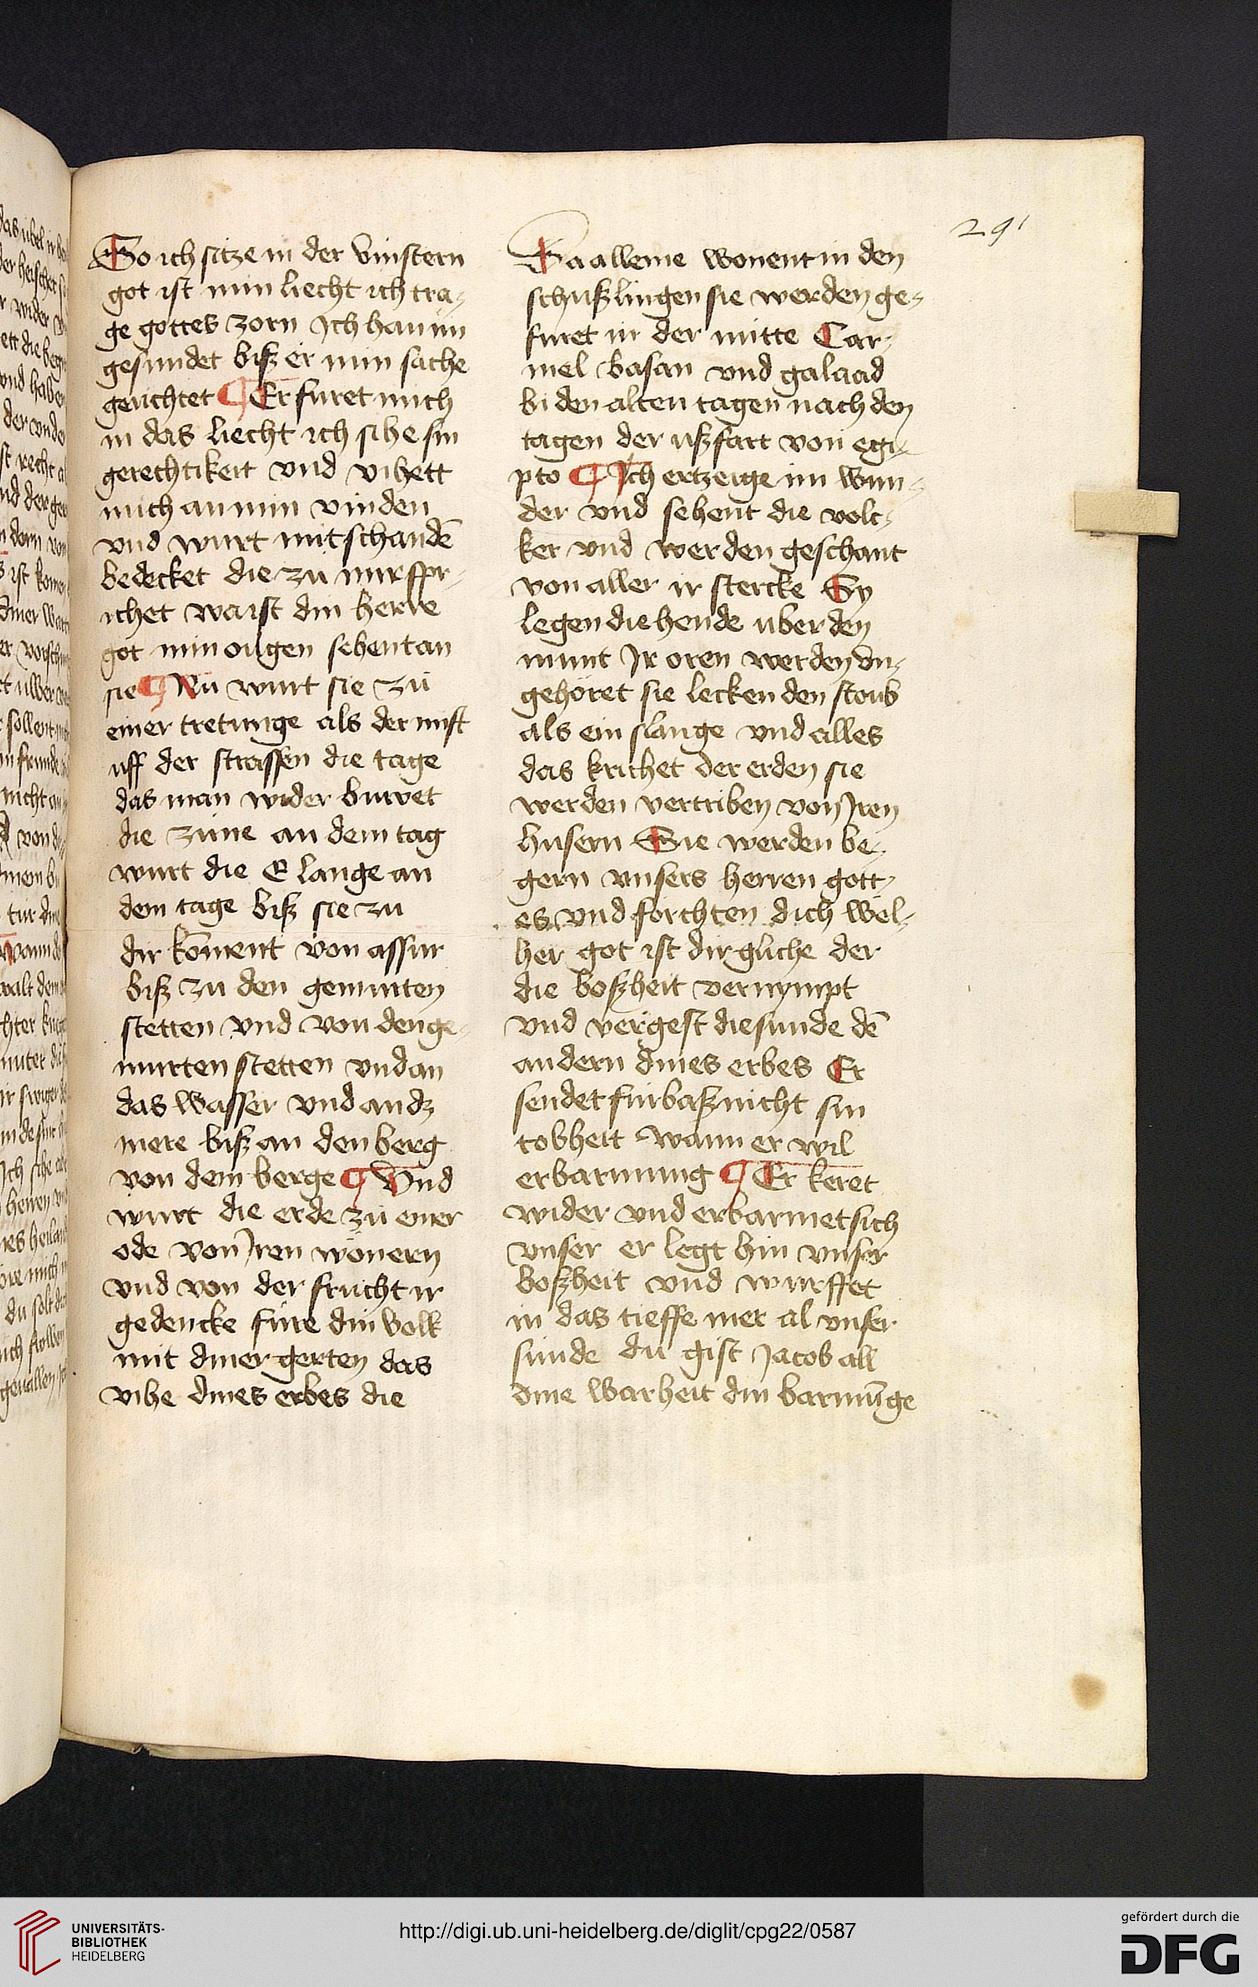 291
So ich sitze in der vinstern
got ist min liecht ich tra⸗
ge gottes zorn Ich han im
gesundet bisz er min sache
gerichtet ¶ Er furet mich
in das liecht ich sihe sin
gerechtikeit vnd vihett
mich an min vinden
vnd wurt mit schandē
bedecket die zu mir spr⸗
ichet wa ist din herre
got min ougen sehent an
sie ¶ Nū wurt sie zū
einer tretunge als der mist
uff der strassen die tage
das man wider buwet
die zúne an dem tag
wurt die E lange an
dem tage bisz sie zu
dir kōment von assur
bisz zu den gemurten
stetten vnd von den ge⸗
murten stetten vnd an
das wasser vnd an dz
mere bisz an den berg
von dem berge ¶ Vnd
wurt die erde zu einer
ode von Iren wonern
vnd von der frucht ir
gedencke fúre din volk
mit diner gerten das
vihe dines erbes die
Da alleine wonent in den
schuszlingen sie werden ge⸗
furet in der mitte Car⸗
mel basan vnd galaad
bi den alten tagen nach den
tagen der uszfart von egi⸗
pto ¶ Ich ertzeige im wun⸗
der vnd sehent die volc⸗
ker vnd werden geschant
von aller ir stercke Sy
legen die hende uber den
munt Ir oren werden vn⸗
gehöret sie lecken den stoub
als ein slange vnd alles
das krichet der erden sie
werden vertriben von Iren
husern Sie werden be⸗
gern vnsers herren gott⸗
es vnd forchten dich wel⸗
her got ist dir gliche der
die boszheit vernympt
vnd vergest die sunde dē
andern dines erbes Er
sendet fúrbasz nicht sin
tobheit wann er wil
erbarmung ¶ Er keret
wider vnd erbarmet sich
vnser er legt hin vnser
boszheit vnd wurffet
in das tieffe mer al vnser
súnde du gist Jacob all
dine warheit din barmūge
UNIVERSITÄTS-
BIBLIOTHEK
HEIDELBERG
http://digi.ub.uni-heidelberg.de/diglit/cpg22/0587
gefördert durch die
DFG